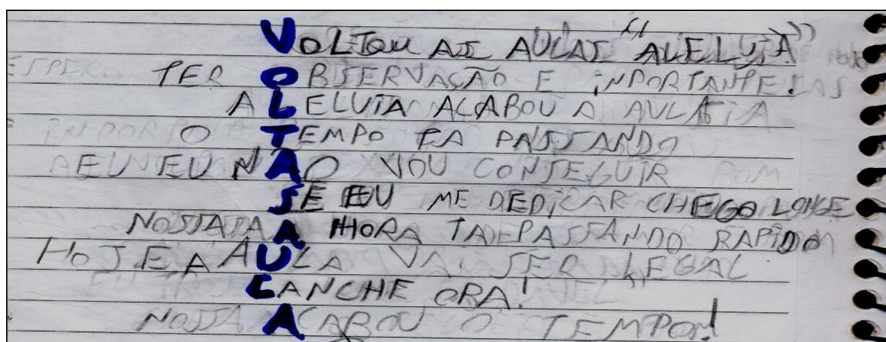 VOLTOU AS AULAS "ALELUIA"
TER OBSERVAÇÃO E iNPORTANTE.
ALELUIA ACABOU A AULA
O TEMPO TA PASSANDO
EU NÃO VOU CONSEGUIR
SE EU ME DEDICAR CHEGO LONGE
NOSSA A HORA TA PASSANDO RAPIDO
HOJE A AULA VAI SER LEGAL
LANCHE ORA!
NOSSA ACABOU O TEMPO!